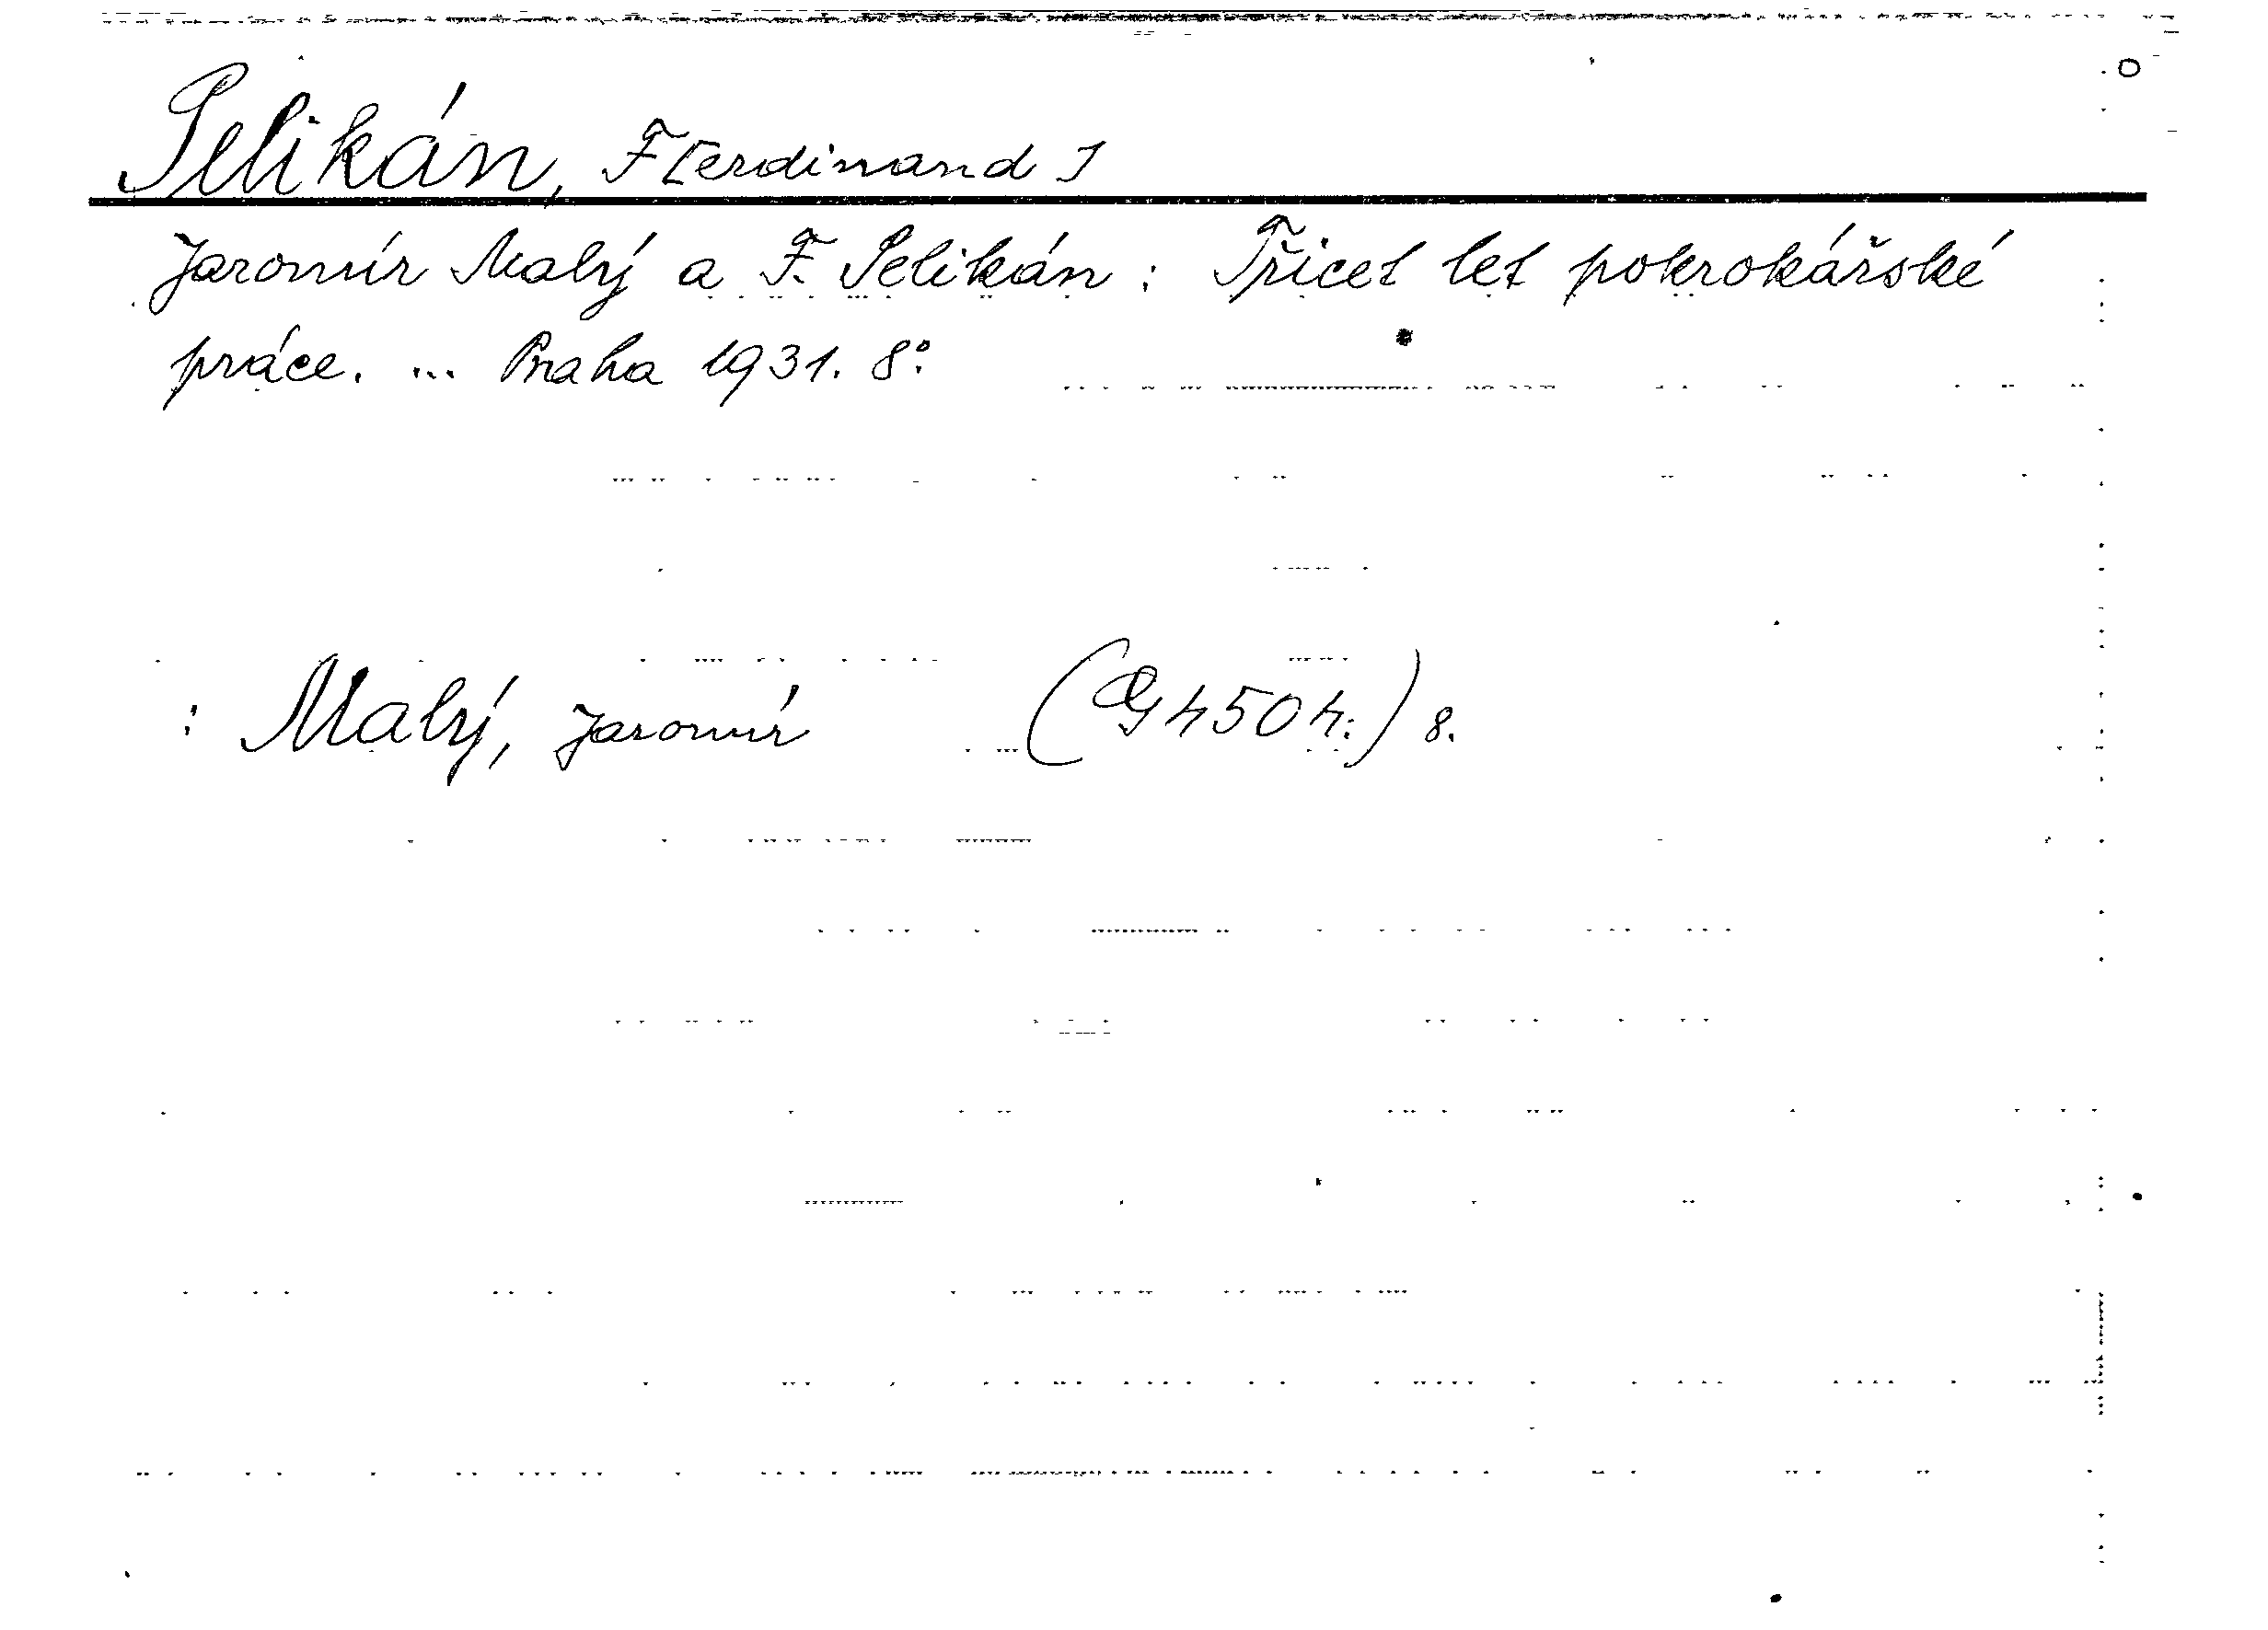 Pelikán, F[erdinand]
Jaromír Malý a F. Pelikán: Třicet let pokrokářské
práce. ... Praha 1931. 8°.
: Malý, Jaromír (G 4504.) 8.